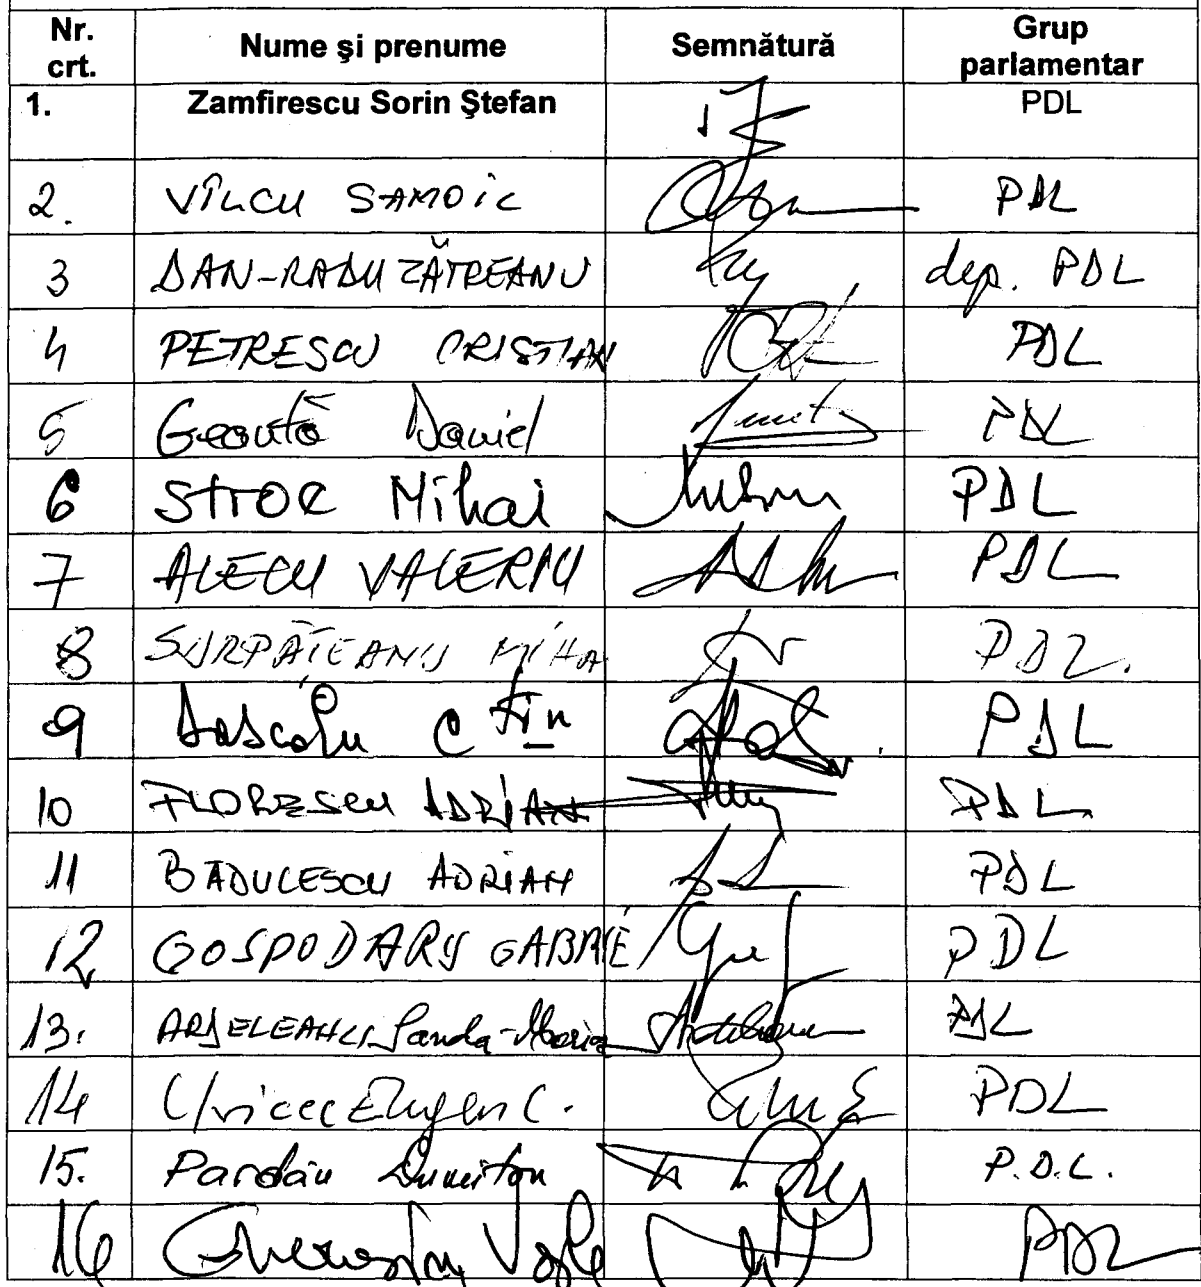 Nr. crt. Nume şi prenume Semnătură Grup parlamentar
1. Zamfirescu Sorin Ştefan PDL
2. VÎLCU SAMOIL PDL
3 DAN-RADU ZĂTREANU dep. PDL
4 PETRESCU CRISTIAN PDL
5 Geantă Daniel PDL
6 Stroe Mihai PDL
7 ALECU VALERIU PDL
8 SURPĂŢEANU MIHA PDL.
9 Dascălu C tin PDL
10 FLORESCU ADRIAN PDL
11 BĂDULESCU ADRIAN PDL
12 GOSPODARU GABRIE PDL
13. ARDELEANU Sanda-Maria PDL
14 Uricec Eugen C. PDL
15. Pardău Dumitru P.D.L.
16 PDL